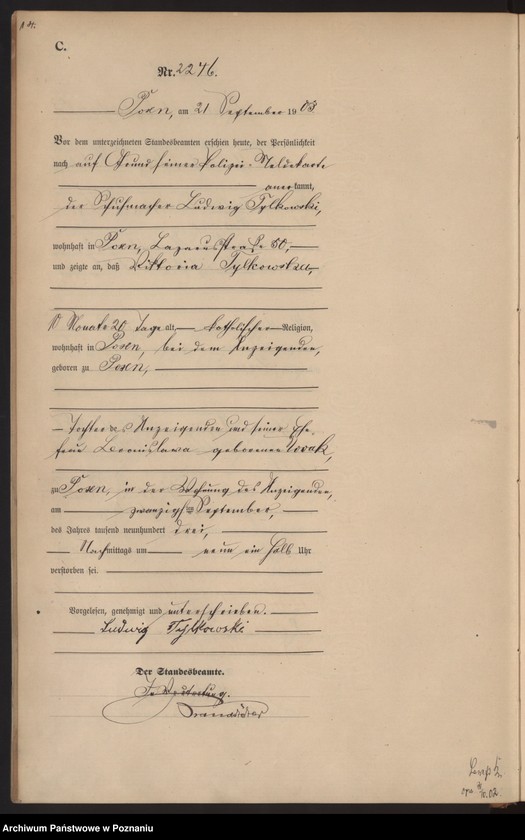 C.
Nr. 2246.
Posen, am 21 September 1903
Vor dem unterzeichneten Standesbeamten erschien heute, der Persönlichkeit
nach auf Grund seiner Polizei-Meldekarte
anerkannt,
der Schuhmacher Ludwig Tylkowski,
wohnhaft in Posen, Lazarusstraße 50,
und zeigte an, daß Viktoria Tylkowska,
10 Monate 20 Tage alt, katholischer Religion,
wohnhaft in Posen, bei dem Anzeigenden,
geboren zu Posen,
Tochter des Anzeigenden und seiner Ehe-
frau Bronislawa geborenen Nowak,
zu Posen, in der Wohnung des Anzeigenden,
am zwanzigsten September,
des Jahres tausend neunhundert drei,
Nachmittags um neun ein halb Uhr
verstorben sei.
Vorgelesen, genehmigt und unterschrieben.
Ludwig Tylkowski
Der Standesbeamte.
In Vertretung.
Archiwum Państwowe w Poznaniu